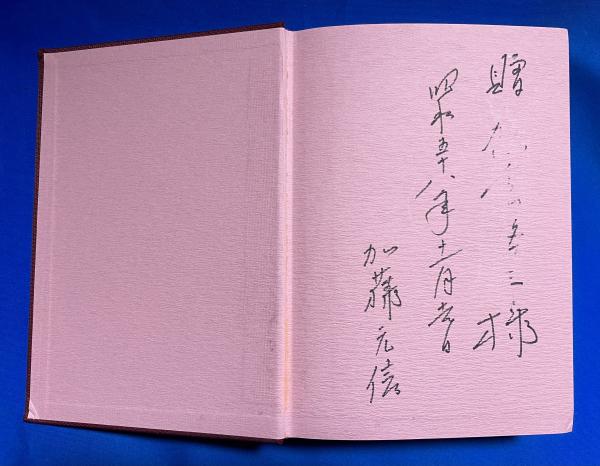 贈 三様
昭和五十八年十一月吉日
加藤元信